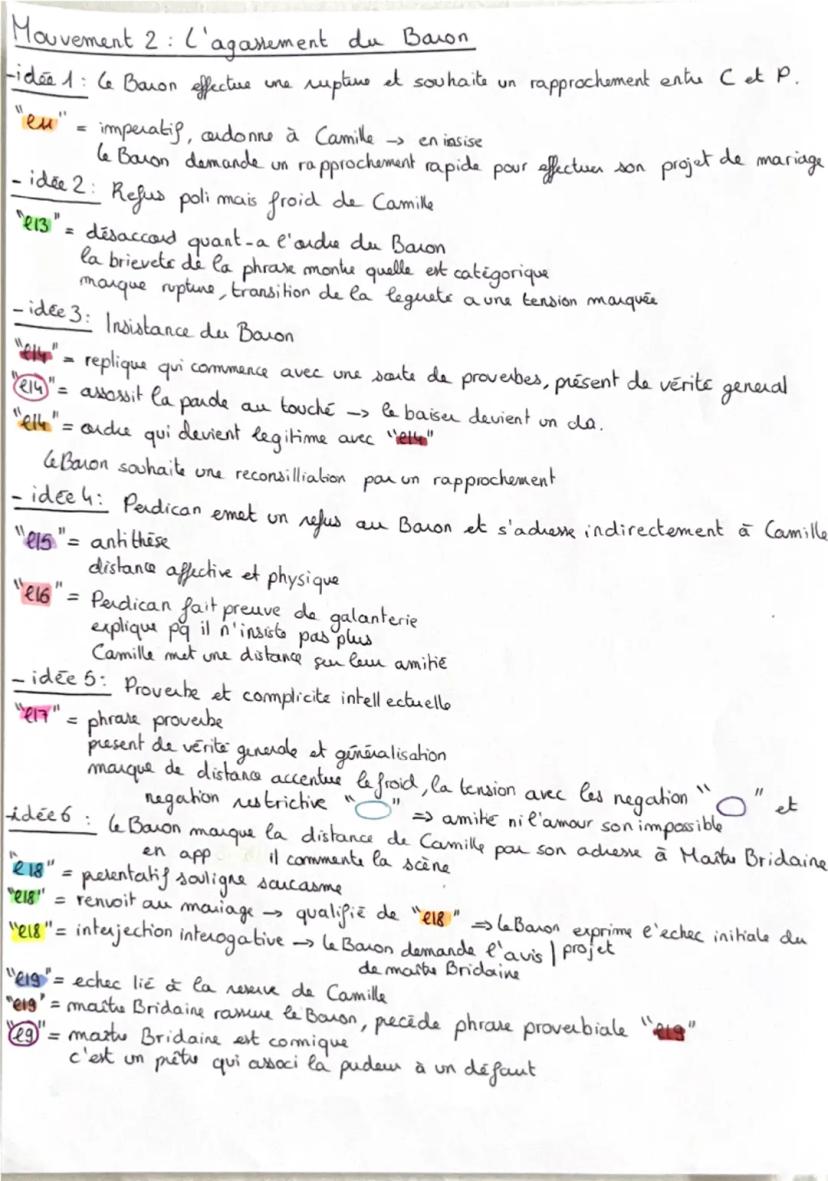 Mouvement 2 : L'agassement du Baron
-idée 1 : Le Baron effectue une rupture et souhaite un rapprochement entre C et P.
"l11" = imperatif, ordonne à Camille → en insise
Le Baron demande un rapprochement rapide pour effectuer son projet de mariage
- idée 2 : Refus poli mais froid de Camille
"l13" = désaccord quant-a l'ordre du Baron
la brieveté de la phrase montre quelle est catégorique
marque rupture, transition de la legueté a une tension marquée
- idée 3 : Insistance du Baron
"l14" = replique qui commence avec une sorte de proverbes, présent de vérité general
"l14" = assossit la parole au touché → le baiser devient un da.
"l14" = ordre qui devient legitime avec "l14"
Le Baron souhaite une reconsilliation par un rapprochement
- idée 4 : Perdican emet un refus au Baron et s'adresse indirectement à Camille
"l15" = antithèse
distance affective et physique
"l16" = Perdican fait preuve de galanterie
explique pq il n'insiste pas plus
Camille met une distance sur leur amitié
- idée 5 : Proverbe et complicite intellectuelle
"l17" = phrase proverbe
present de vérité generale et généralisation
marque de distance accentue le froid, la tension avec les negation " " et
negation restrictive " " ⇒ amitié ni l'amour son impossible
-idée 6 : Le Baron marque la distance de Camille par son adresse à Maitre Bridaine
en app il commente la scène
"l18" = presentatif souligne sarcasme
"l18" = renvoit au mariage → qualifié de "l18" ⇒ Le Baron exprime l'echec initiale du
"l18" = interjection interogative → le Baron demande l'avis | projet
de maître Bridaine
"l19" = echec lié à la reserve de Camille
"l19" = maître Bridaine rassure le Baron, pecède phrase proverbiale "l19"
"l9" = maitre Bridaine est comique
c'est un prêtre qui associ la pudeur à un défaut